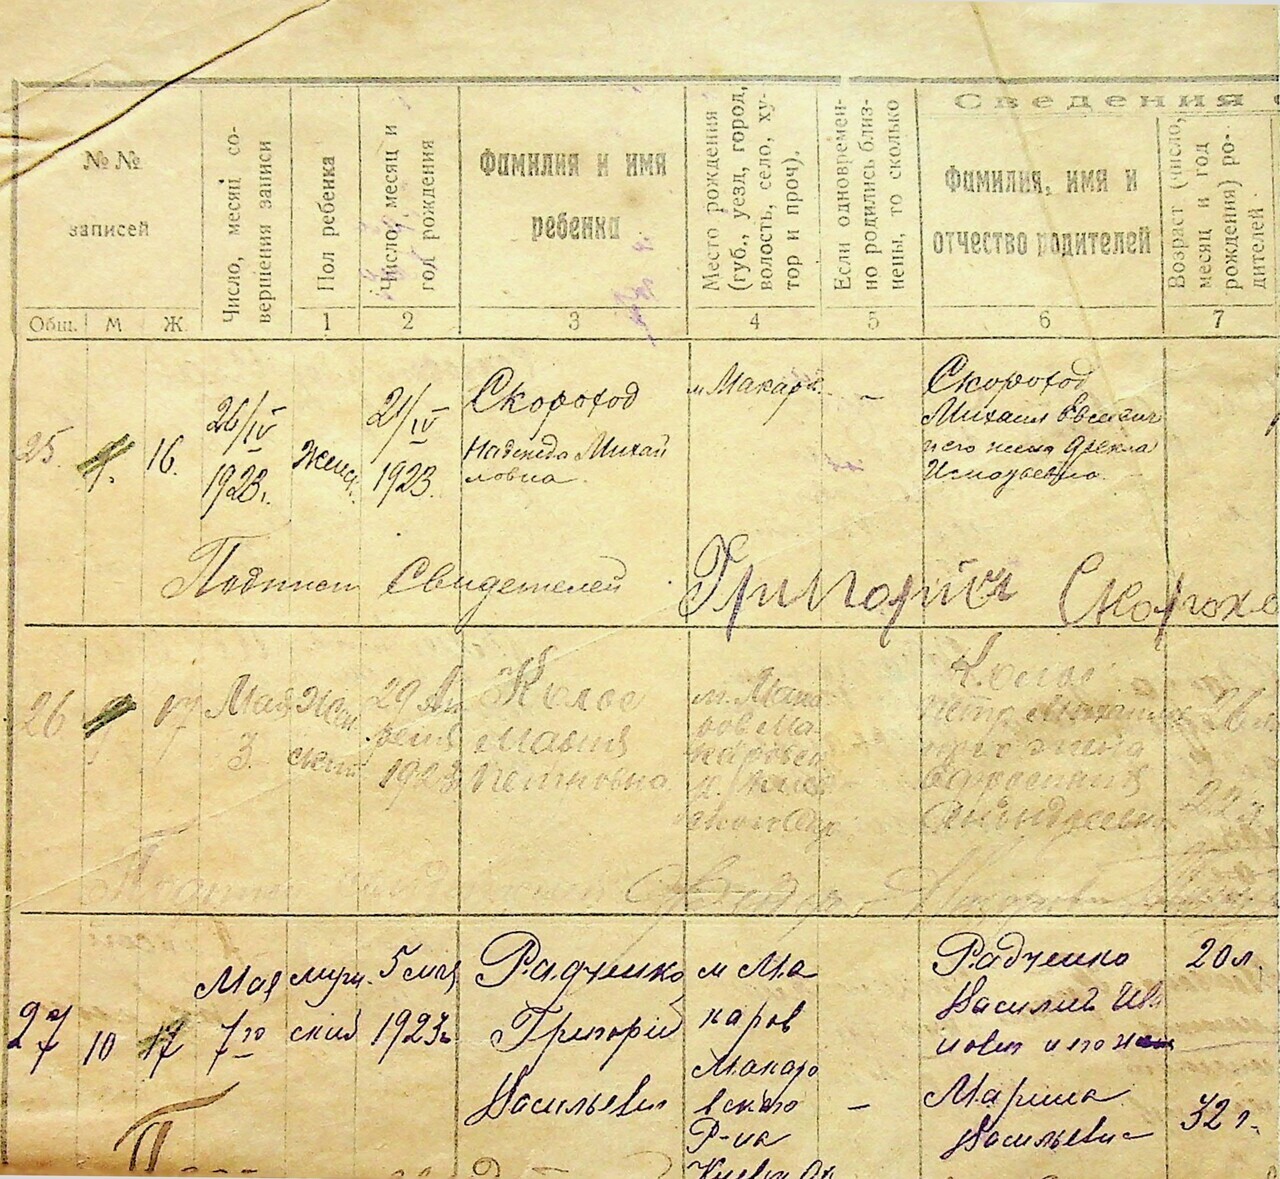 Сведения о
№ №
записей
Число, месяц со-
вершения записи
Пол ребенка
Число, месяц и
год рождения
Фамилия и имя
ребенка
Место рождения
(губ., уезд, город,
волость, село, ху-
тор и проч).
Если одновремен-
но родились близ-
нецы, то сколько
Фамилия, имя и
отчество родителей
Возраст (число,
месяц и год
рождения) ро-
дителей.
Общ. М Ж. 1 2 3 4 5 6 7
25. 16.
26/IV
1923г.
Женск.
21/IV
1923.
Скороход
Надежда Михай
ловна
м Макаров
-
Скороход
Михаил Евсеевич
и его жена Фекла
Подписи Свидетелей Григорий Скорохо
26 17
Мая
3
Жен
ский
29 Ап
реля
1923
Колос
Мария
Петровна
м. Мака
ров Ма
каровск
Колос
Петр Михайлов
Ефросиния
22л
27 10 17
Мая
7го
муж.
ский
5 мая
1923г
Радченко
Григорий
Васильевич
м Ма
каров
Макаро
вского
Р-на
Киевск Ок
-
Радченко
Василий Ив
нович и его жена
Марина
Васильевна
20л.
32 г.